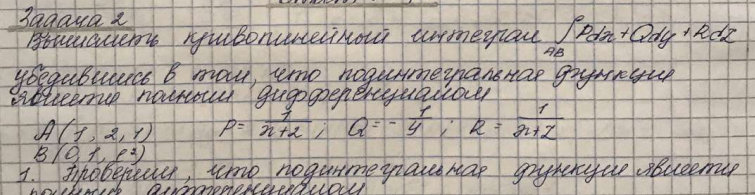 Задача 2
Вычислить криволинейный интеграл ∫AB Pdx+Qdy+Rdz
убедившись в том, что подинтегральная функция
является полным дифференциалом
A(1,2,1) P= 1/x+z ; Q=-1/y ; R= 1/x+z
B(0,1,e²)
1. Проверим, что подинтегральная функция является
полным дифференциалом